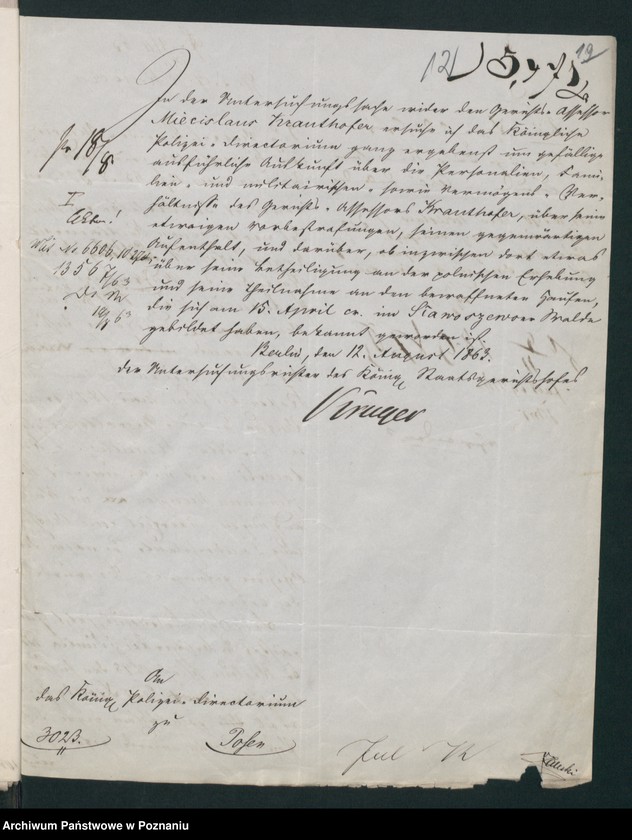 12
19
In der Untersuchungssache wider den Gerichts-Assessor
Miecislaus Krauthofer ersuche ich das Königliche
Polizei-Directorium ganz ergebenst um gefällige
ausführliche Auskunft über die Personalien, Fami-
lien- und militairischen- sowie Vermögens-Ver-
hältnisse des Gerichts-Assessors Krauthofer, über seine
etwaigen Vorbestrafungen, seinen gegenwärtigen
Aufenthalt, und darüber, ob inzwischen dort etwas
über seine Betheiligung an der polnischen Erhebung
und seine Theilnahme an den bewaffneten Haufen,
die sich am 15. April cr. im Walde
gebildet haben, bekannt geworden ist.
Berlin, den 12. August 1863.
Der Untersuchungsrichter des Königl Staatsgerichtshofes
Krüger
pr 18/8
I
Akten!
No 6606.
13567/63
19/8 63
An
das Königl Polizei-Directorium
zu
3023.
Posen
Archiwum Państwowe w Poznaniu